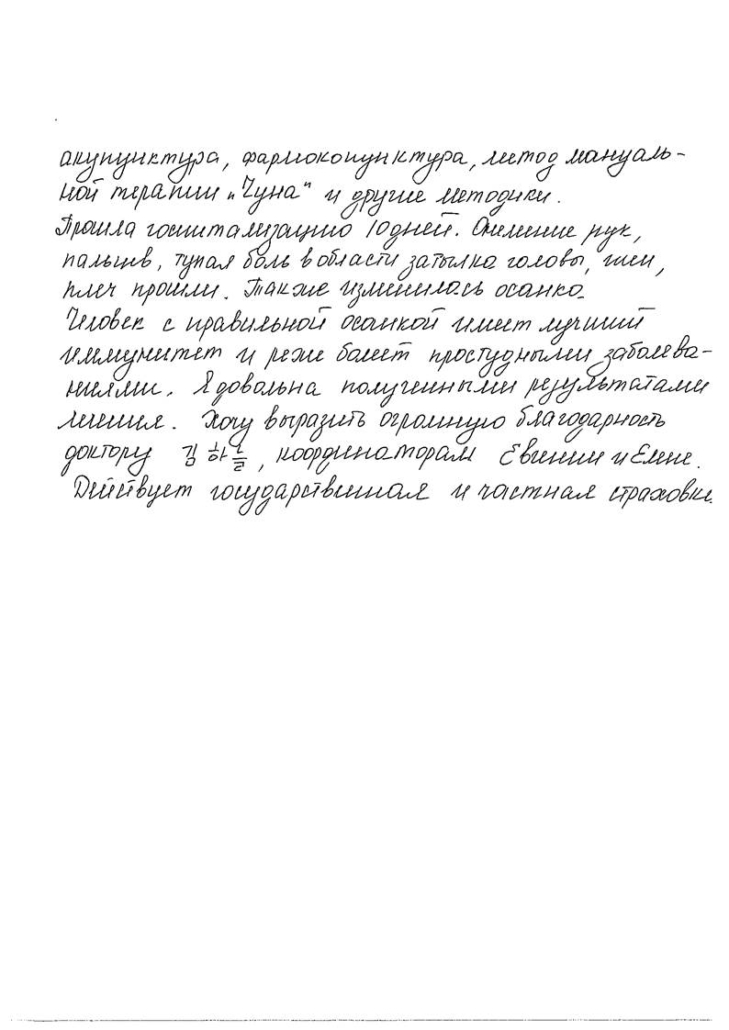 акупунктура, фармокопунктура, метод мануаль-
ной терапии „Чуна" и другие методики.
Прошла госпитализацию 10 дней. Онемение рук,
пальцев, тупая боль в области затылка головы, шеи,
плеч прошли. Также изменилась осанка.
Человек с правильной осанкой имеет лучший
иммунитет и реже болеет простудными заболева-
ниями. Я довольна полученными результатами
лечения. Хочу выразить огромную благодарность
доктору 김하늘, координаторам Евгении и Елене.
Действует государственная и частная страховки.